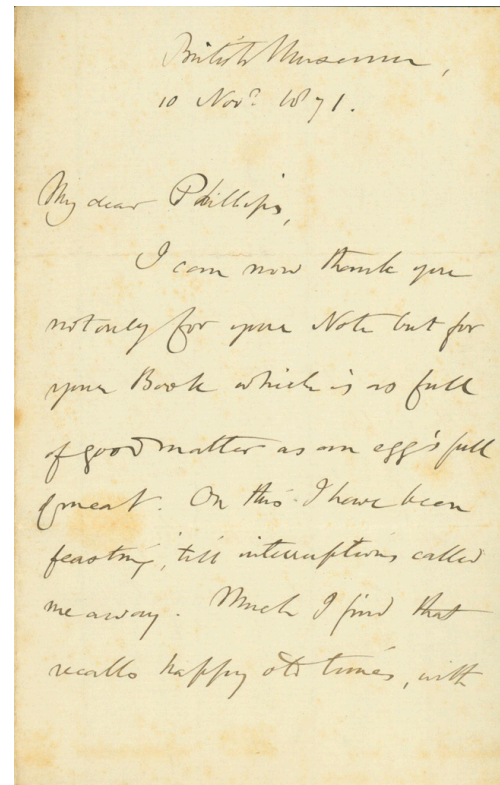 British Museum,
10 Nov.r 1871.
My dear Phillips,
I can now thank you
not only for your Note but for
your Book which is as full
of good matter as an egg's full
of meat. On this I have been
feasting, till interruptions called
me away. Much I find that
recalls happy old times, with